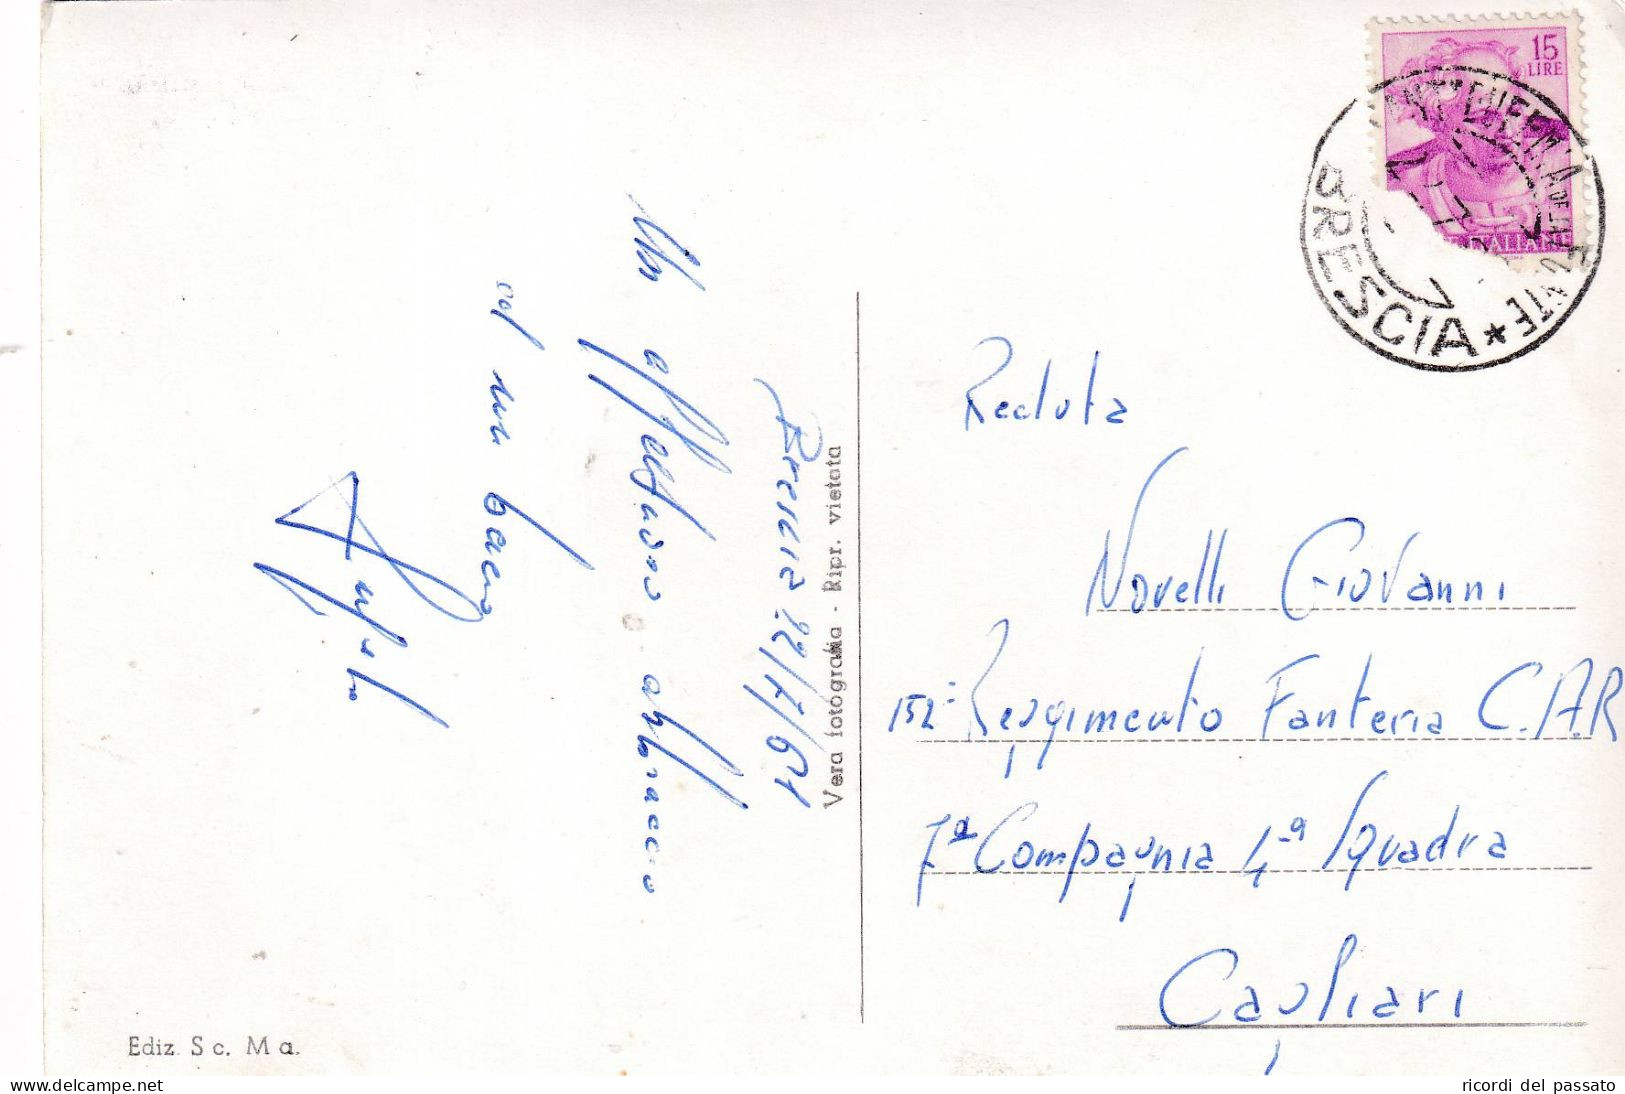 15
LIRE
ITALIANE
BRESCIA *
Recluta
Novelli Giovanni
152° Reggimento Fanteria C.A.R
7ª Compagnia 4ª Squadra
Cagliari
Vera fotografia - Ripr. vietata
Brescia 22/7/61
Un affettuoso abbraccio
ed un bacio
Ediz. Sc. Ma.
ricordi del passato